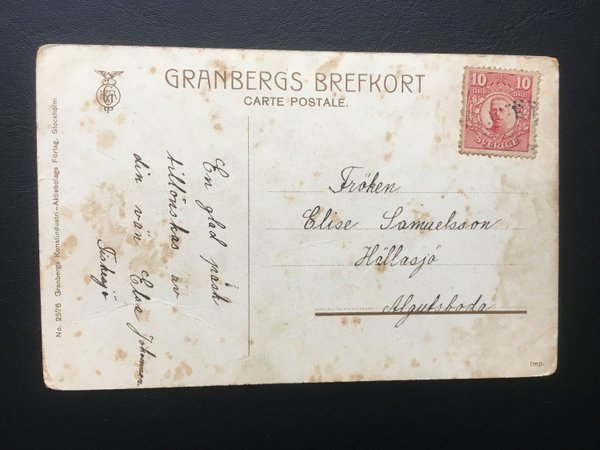 GRANBERGS BREFKORT
CARTE POSTALE.
10 10
ÖRE ÖRE
SVERIGE
En glad påsk
tillönskas av
din vän Elsa Johansson
Fröken
Elise Samuelsson
Hällasjö
Algutsboda
No. 2576 Granbergs Konstindustri-Aktiebolags Förlag, Stockholm
Imp.